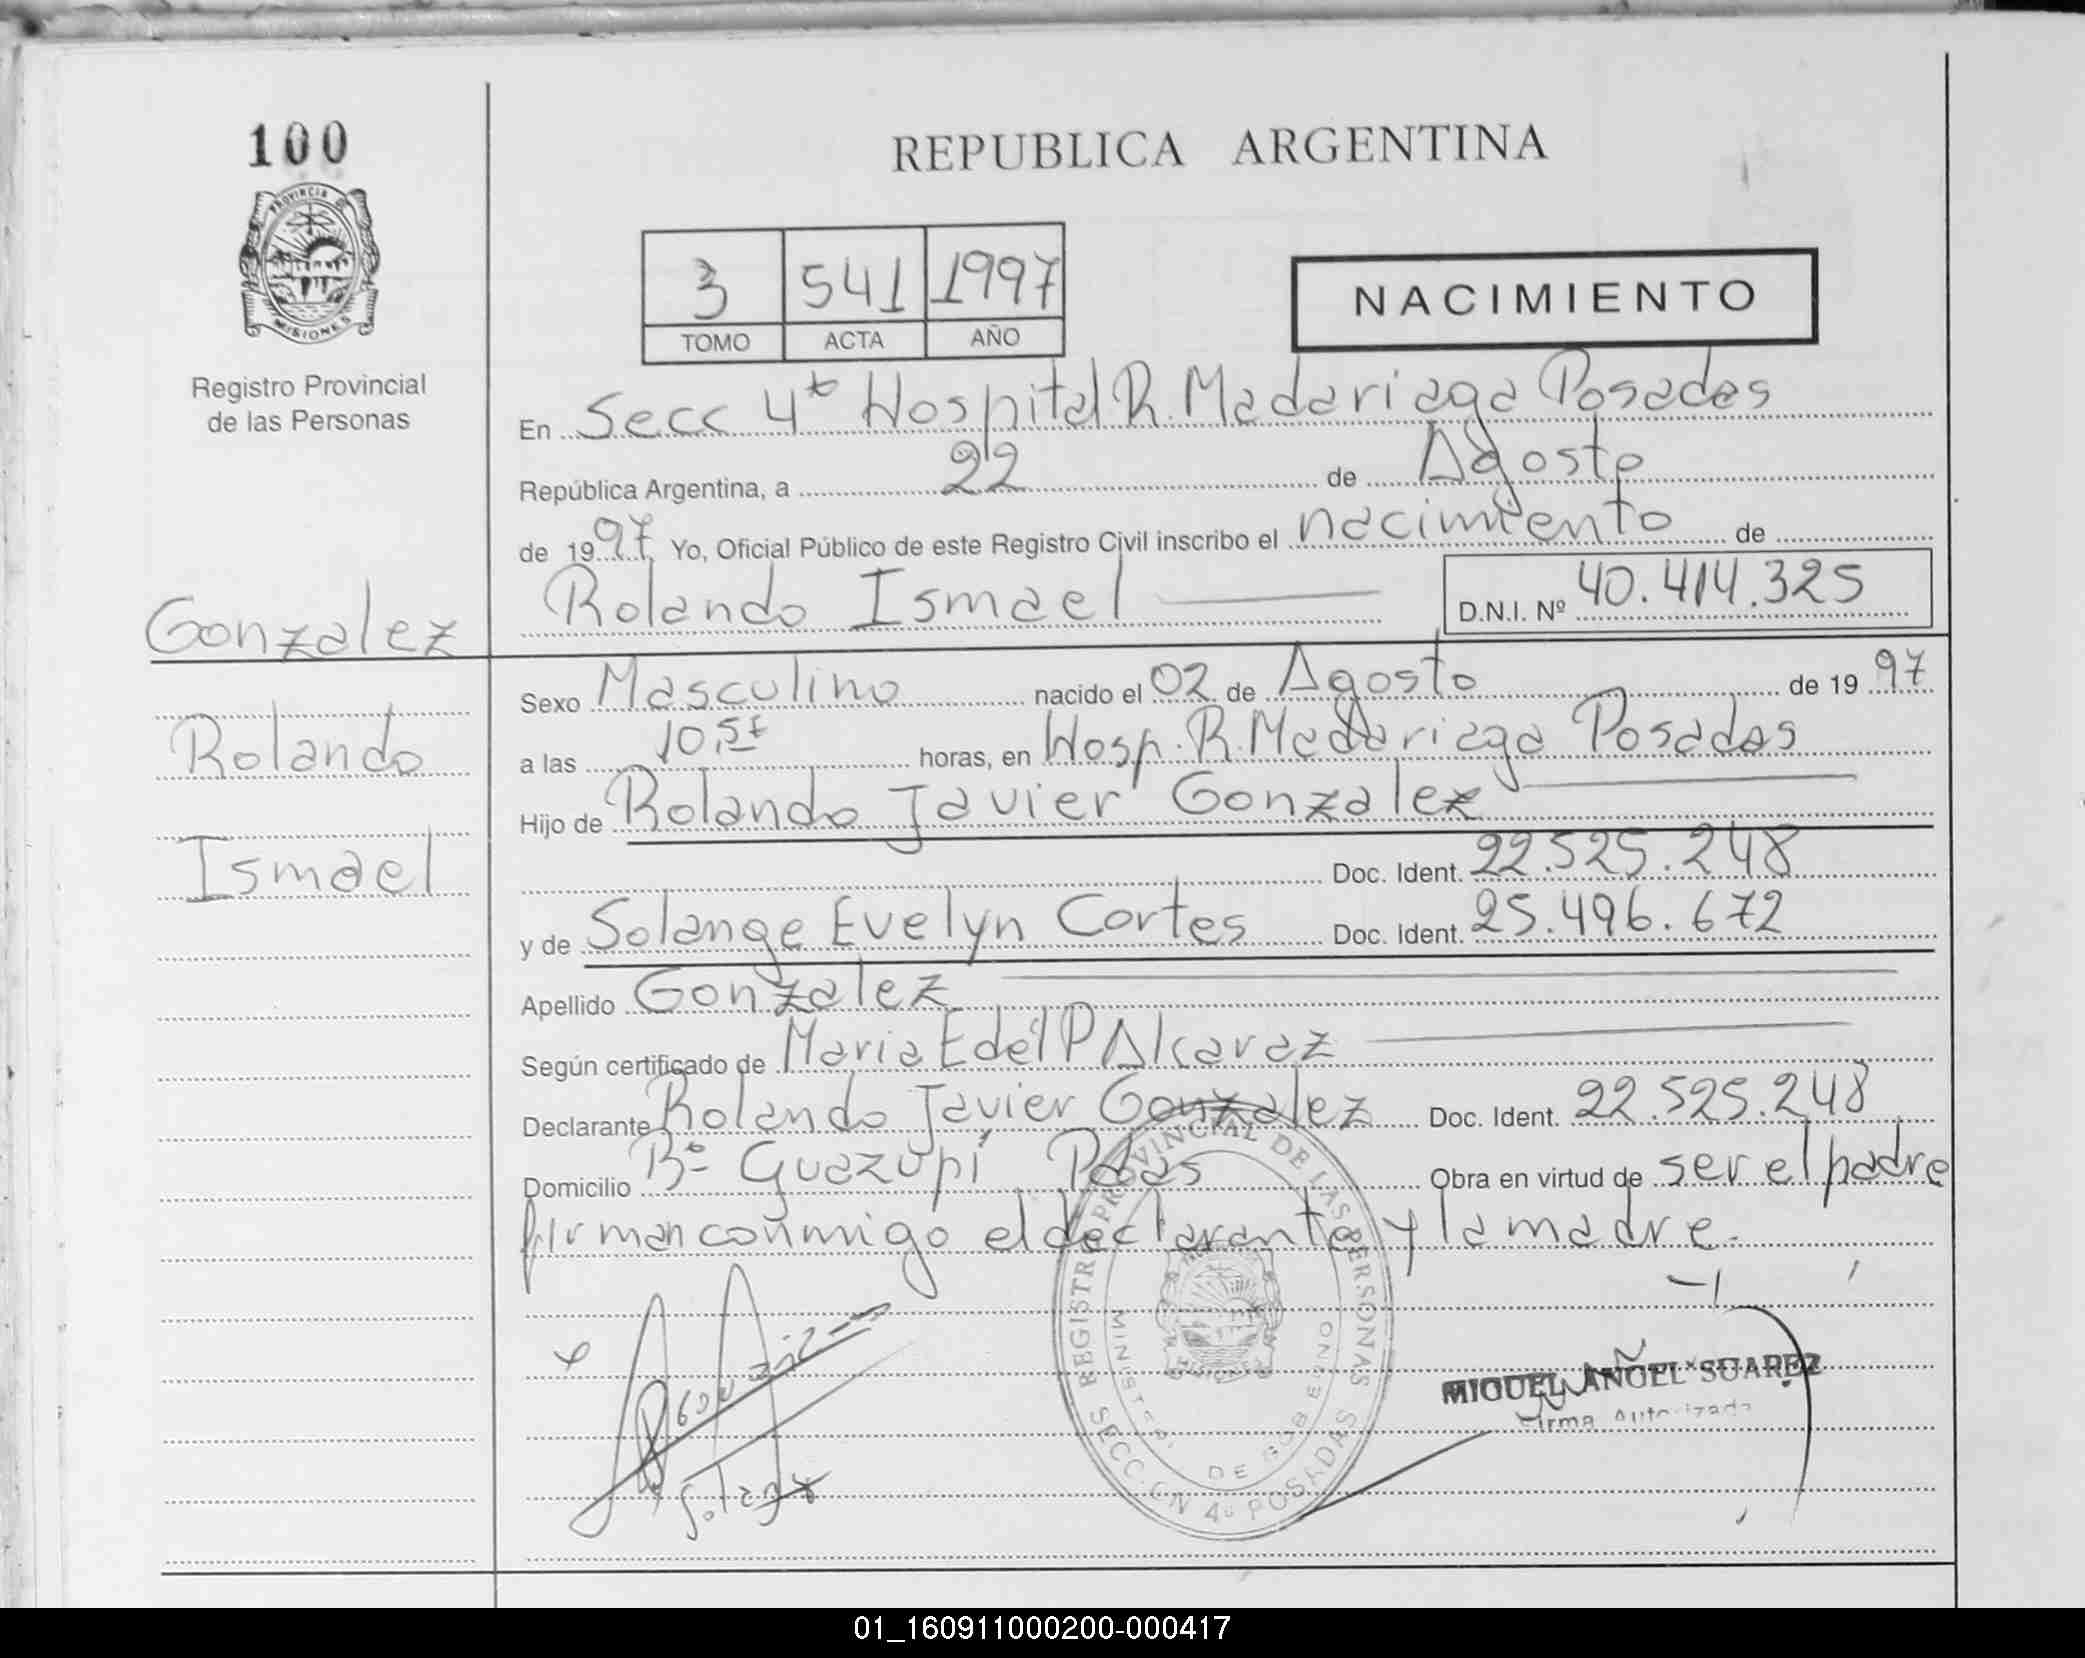 100
PROVINCIA DE
MISIONES
Registro Provincial
de las Personas
Gonzalez
Rolando
Ismael
REPUBLICA ARGENTINA
3 541 1997
TOMO ACTA AÑO
NACIMIENTO
En Secc 4ta Hospital R. Madariaga Posadas
República Argentina, a 22 de Agosto
de 1997. Yo, Oficial Público de este Registro Civil inscribo el nacimiento de
Rolando Ismael D.N.I. Nº 40.414.325
Sexo Masculino nacido el 02 de Agosto de 1997
a las horas, en Hosp. R. Madariaga Posadas
Hijo de Rolando Javier Gonzalez
Doc. Ident. 22.525.248
y de Solange Evelyn Cortes Doc. Ident. 25.496.672
Apellido Gonzalez
Según certificado de Maria Edel P Alcaraz
Declarante Rolando Javier Gonzalez Doc. Ident. 22.525.248
Domicilio Bº Guazupi Pdas Obra en virtud de ser el padre
firman conmigo el declarante y la madre.
REGISTRO PROVINCIAL DE LAS PERSONAS
MINISTERIO DE GOBIERNO
SECCION 4º POSADAS
MISIONES
MIGUEL ANGEL SUAREZ
Firma Autorizada
01_160911000200-000417